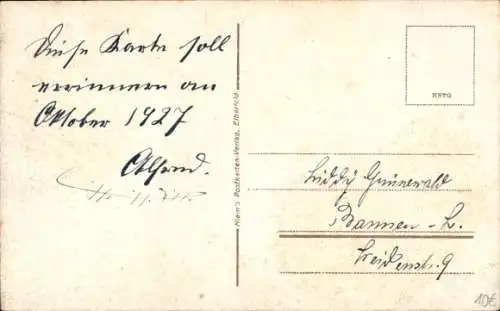 Diese Karte soll
errinnern an
Oktober 1927
Alfred.
Klein's Postkarten-Verlag, Elberfeld
Liddy Grünewald
Barmen - L.
Heidenstr. 9
10€